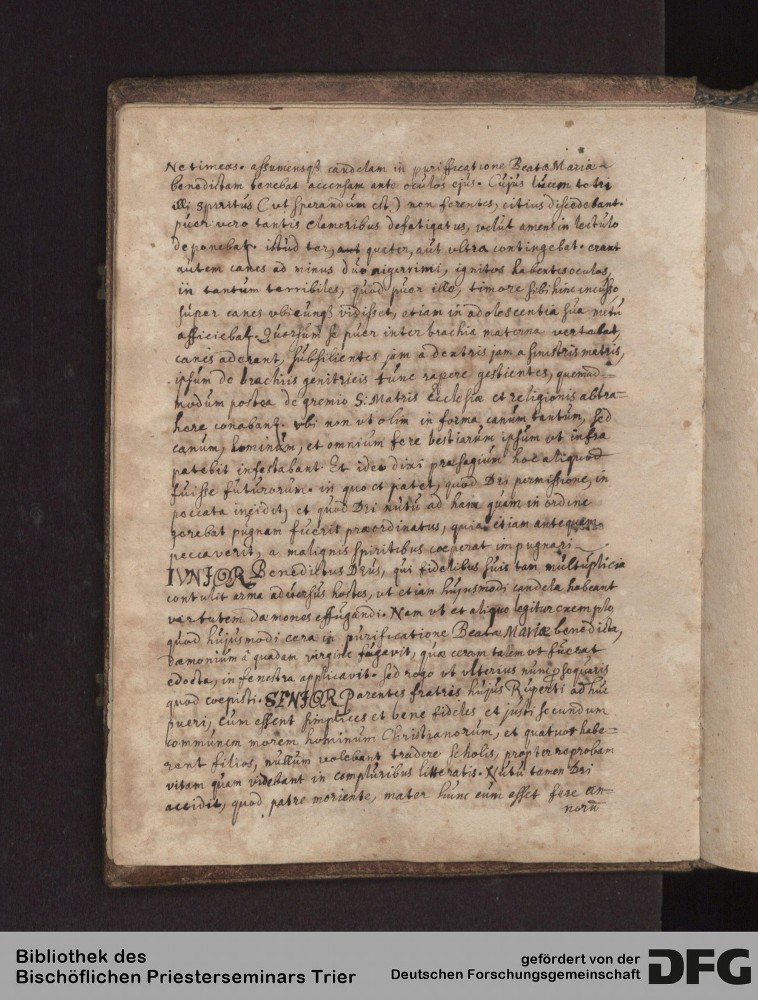 Ne timeas. assumensqꝫ candelam in purifficatione Beatæ Mariæ
benedictam tenebat accensam ante oculos ejus. Cujus lucem tetri
illi spiritus (ut sperandum est) non ferentes, citius discedebant.
puer vero tantis clamoribus defatigatus, velut amens in lectulo
deponebat. istud ter, aut quater, aut ultra contingebat. erant
autem canes ad minus duo nigerrimi, ignitos habentes oculos,
in tantum terribiles, quod puer ille, timore sibi hinc incusso
super canes ubicunqꝫ vidisset, etiam in adolescentia sua metu
afficiebat. Quorsum se puer inter brachia materna vertebat,
canes aderant, subsilientes jam a dextris jam a sinistris matris,
ipsum de brachiis genitricis tunc rapere gestientes, quemad=
modum postea de gremio S. Matris Ecclesiæ et religionis abtra=
here conabant. ubi non ut olim in forma canum tantum, sed
canum, hominum, et omnium fere bestiarum ipsum ut infra
patebit infestabant. Et ideo dini præsagium hoc aliquod
fuisse futurorum. in quo et patet, quod Dei permissione, in
peccata incidit, et quod Dei nutu ad hanc quam in ordine
gerebat pugnam fuerit præordinatus, quia etiam antequam
peccaverit, a malignis spiritibus cœperat impugnari
IVNIOR Benedictus Deus, qui fidelibus suis tam multiplicia
contulit arma adversus hostes, ut etiam hujusmodi candelæ habeant
virtutem dæmones effugandi. Nam ut et aliquo legitur exemplo,
quod hujusmodi cera in purificatione Beatæ Mariæ benedicta,
dæmonium à quadam virgine fugavit, quæ ceram talem ut fuerat
edocta, in fenestra applicavit. sed rogo ut ulterius nunc prosequaris
quod coepisti. SENIOR Parentes fratris hujus Ruperti adhuc
pueri, cum essent simplices et bene fideles et justi secundum
communem morem hominum Christianorum, et quatuor habe=
rent filios, nullum volebant tradere scholis, propter reprobam
vitam quam videbant in compluribus litteratis. Nutu tamen Dei
accidit, quod patre moriente, mater hunc cum esset fere an=
norum
Bibliothek des
Bischöflichen Priesterseminars Trier
gefördert von der
Deutschen Forschungsgemeinschaft
DFG